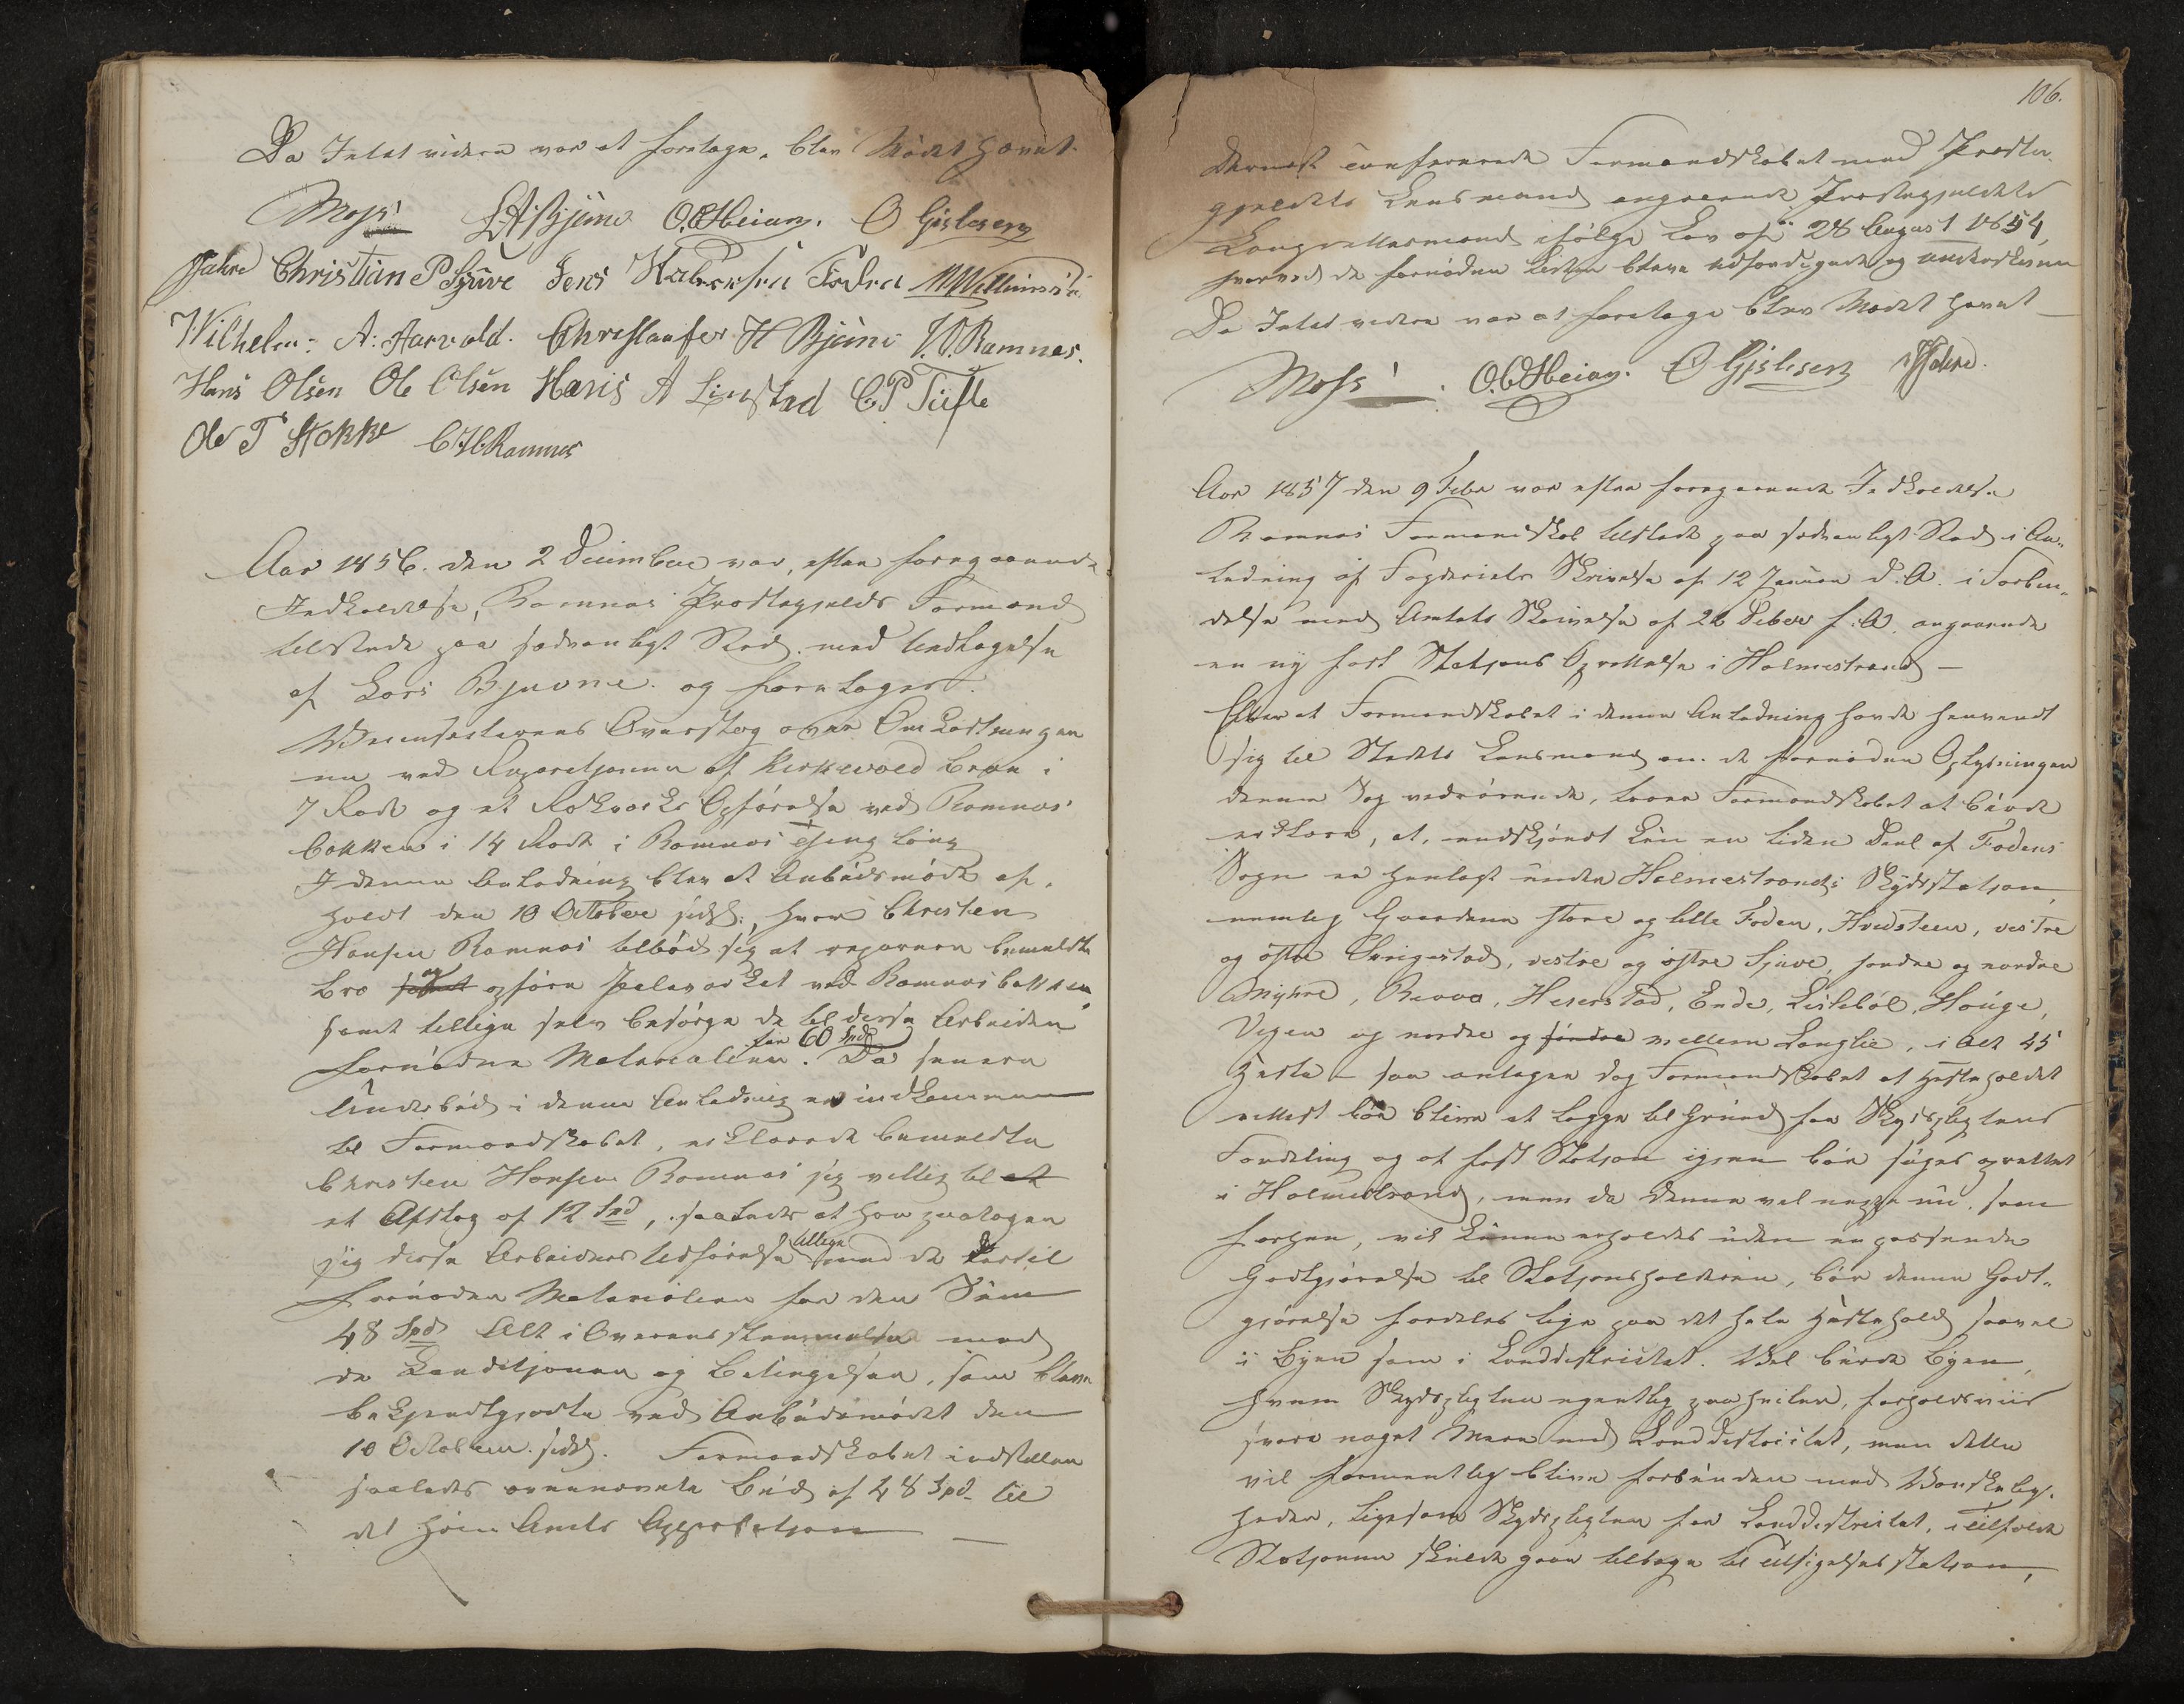 Da Intet videre var at foretage, blev Mødet hævet.
Moss LABjune O.CHeian. O Gislesen
Jahre Christian P Sjuve Jens
Wilhelm: A: Aarvold. Christaafer H Bjune Ramnes.
Hans Olsen Ole Olsen Hans A Linstad CP Tufte
Ole T Stokke CHRamnes
Aar 1856. den 2 December var, efter foregaaende
Indkaldelse, Ramnæs Præstegjelds Formænd
tilstede paa sædvanligt Sted, med Undtagelse
af Lars Bjuone. og foretoges.
Overslag over Omkostninger
ne ved Reparationen af Kirkevold Broen i
7 Rode og et Rækværks Opførelse ved Ramnæs
bakken i 14 Rode i Ramnæs Thinglaug
I denne Anledning blev et Anbudsmøde af-
holdt den 10 October sidstl., hvor Christen
Hansen Ramnæs tilbød sig at reparere bemeldte
Bro og opføre Pæleværket ved Ramnæsbakken
samt tillige selv besørge de til disse Arbeider
fornødne Materialier for 60 Spd. Da senere
Underbud i denne Anledning er indkommen
til Formandskabet, erklærede bemeldte
Christen Hansen Ramnæs sig villig til at
et Afslag af 12 Spd, saaledes at han paatager
sig disse Arbeiders Udførelse tillige med de dertil
fornødne Materialier for den Sum
48 Spd Alt i Overensstemmelse med
de Conditjoner og Betingelser, som bleve
bekjendtgjordte ved Anbudsmødet den
10 October sidstl. Formandskabet indstiller
saaledes ovennævnte Bud af 48 Spd. til
det høie Amts Approbatjon —
106.
Dernæst confererede Formandskabet med Præste-
gjeldets Lensmand angaaende Præstegjeldets
Laugrettesmænd ifølge Lov af 28 August 1854,
hvorved de fornødne Lister bleve udfærdigede og underskrevne
Da Intet videre var at foretage blev Mødet hævet —
Moss . O.CHeian. O Gislesen Jahre.
Aar 1857 den 9 Febr var efter foregaaende Indkaldelse
Ramnæs Formandskab tilstede paa sædvanligt Sted i An-
ledning af Fogderiets Skrivelse af 12 Januar d. A. i Forbin-
delse med Amtets Skrivelse af 22 Decbr f. A. angaaende
en ny fast Statjons Oprettelse i Holmestrand —
Efter at Formandskabet i denne Anledning havde henvendt
sig til Stedets Lensmand om de fornødne Oplysninger
denne Sag vedrørende, troer Formandskabet at burde
erklære, at, endskjøndt kun en liden Deel af Fodens
Sogn er henlagt under Holmestrands Skydsstatjon,
nemlig Gaardene store og lille Foden, Hvidsteen, vestre
og østre Sverigestad, vestre og østre Sjuve, søndre og nordre
Myhre, Revaa, Heierstad, Ende, Lisleböl, Houge,
Vegen og nordre og søndre mellem Langlie, i Alt 45
Heste — saa antager dog Formandskabet at Hesteholdet
rettest bør blive at lægge til Grund for Skydspligtens
Fordeling og at fast Statjon igjen bør søges oprettet
i Holmestrand, men da denne vel neppe nu, som
forhen, vil kunne erholdes uden en passende
Godtgjørelse til Statjonsholderen, bør denne Godt-
gjørelse fordeles lige paa det hele Hestehold saavel
i Byen som i Landdistriktet. Vel burde Byen,
hvem Skydspligten egentlig paahviler, forholdsviis
svare noget Mere end Landdistrictet, men dette
vil formentlig blive forbunden med Vanskelig-
heder, ligesom Skydspligten for Landdistrictet, i Tilfælde
Statjonen skulde gaae tilbage til Tilsigelsesstatjon,